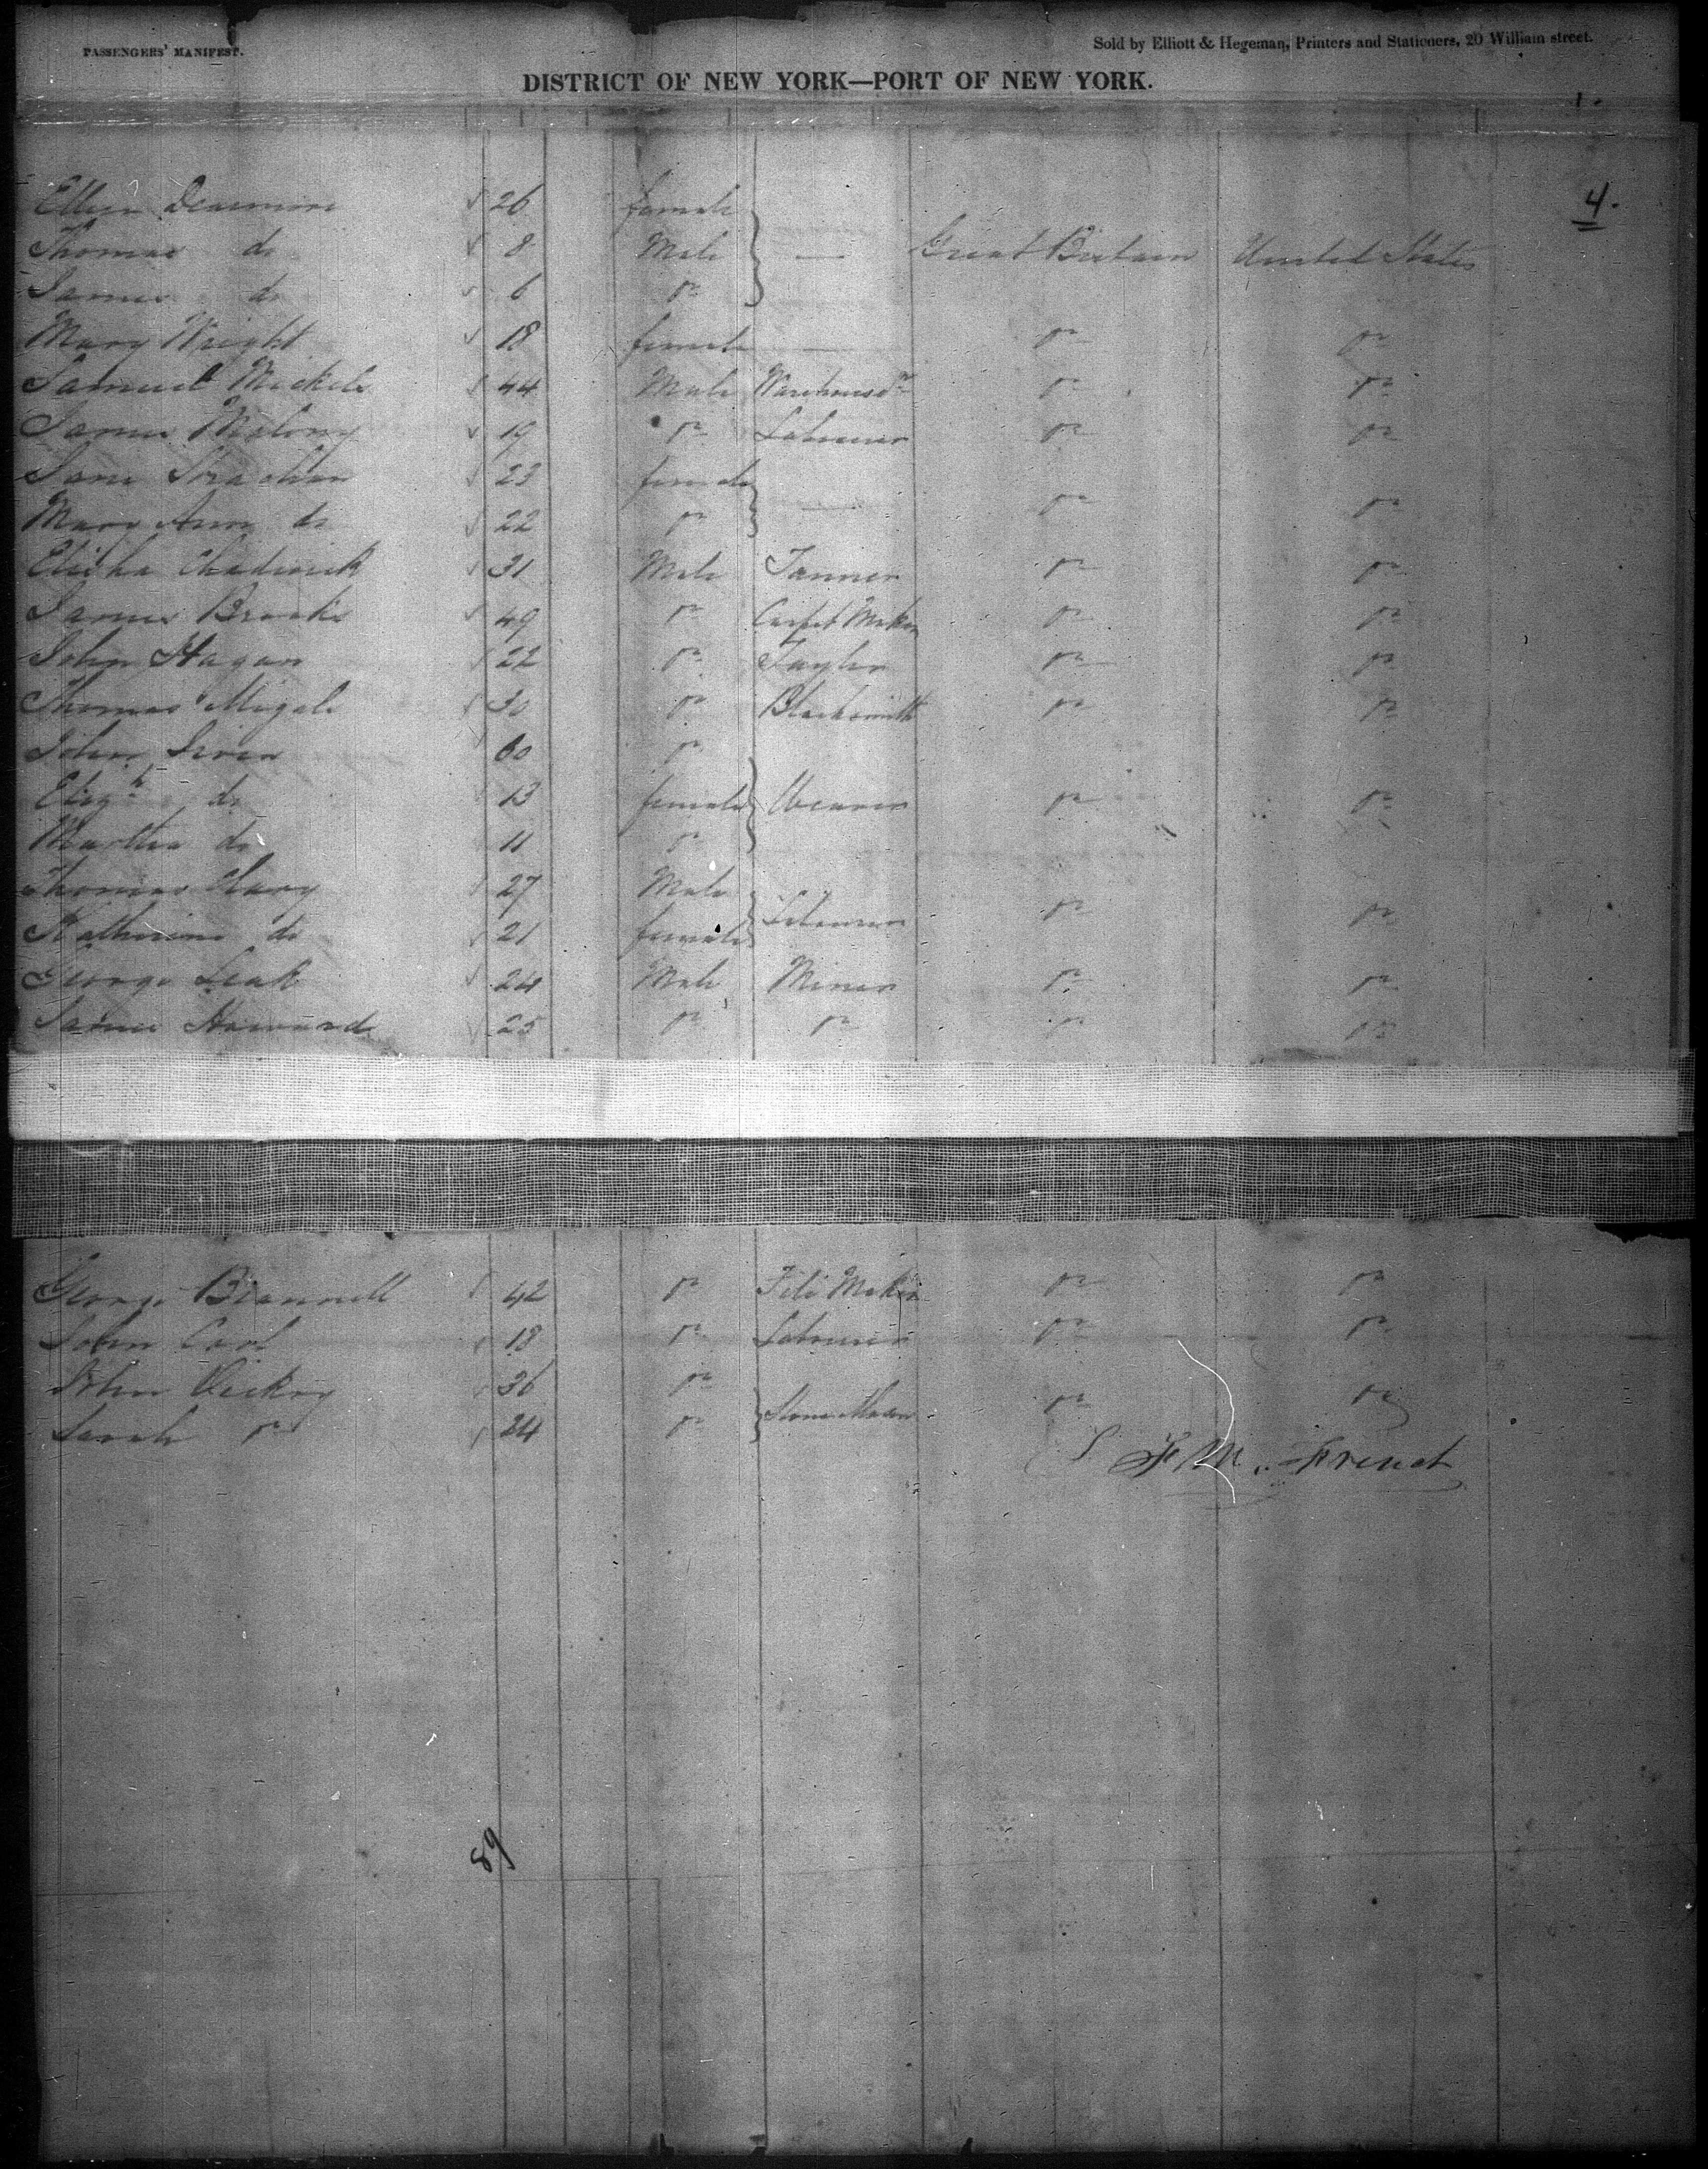 PASSENGERS' MANIFEST.
Sold by Elliott & Hegeman, Printers and Stationers, 20 William street.
DISTRICT OF NEW YORK—PORT OF NEW YORK.
4.
Ellen 26 female
Thomas do 8 Male — Great Britain United States
James do 6 Do
Mary Wright 18 female — Do Do
Samuel Mickels 44 Male Warehouse Do Do
James Malony 19 Do Labourer Do Do
Jane Strachan 23 female
Mary Ann do 22 Do — Do Do
Elisha Chadwick 31 Male Tanner Do Do
James Brooks 49 Do Carpet Maker Do Do
John Hagan 22 Do Taylor Do Do
Thomas 30 Do Blacksmith Do Do
John Irven 60 Do
Elizth do 13 female Weaver Do Do
Martha do 11 Do
Thomas Clary 27 Male
Katherine do 21 female Labourer Do Do
George Leak 24 Male Miner Do Do
James Howard 25 Do Do Do Do
George 42 Do File Maker Do Do
John Carl 18 Do Labourer Do Do
John Vickry 36 Do
Sarah Do 24 Do Stone Mason Do Do
F. M. French
89